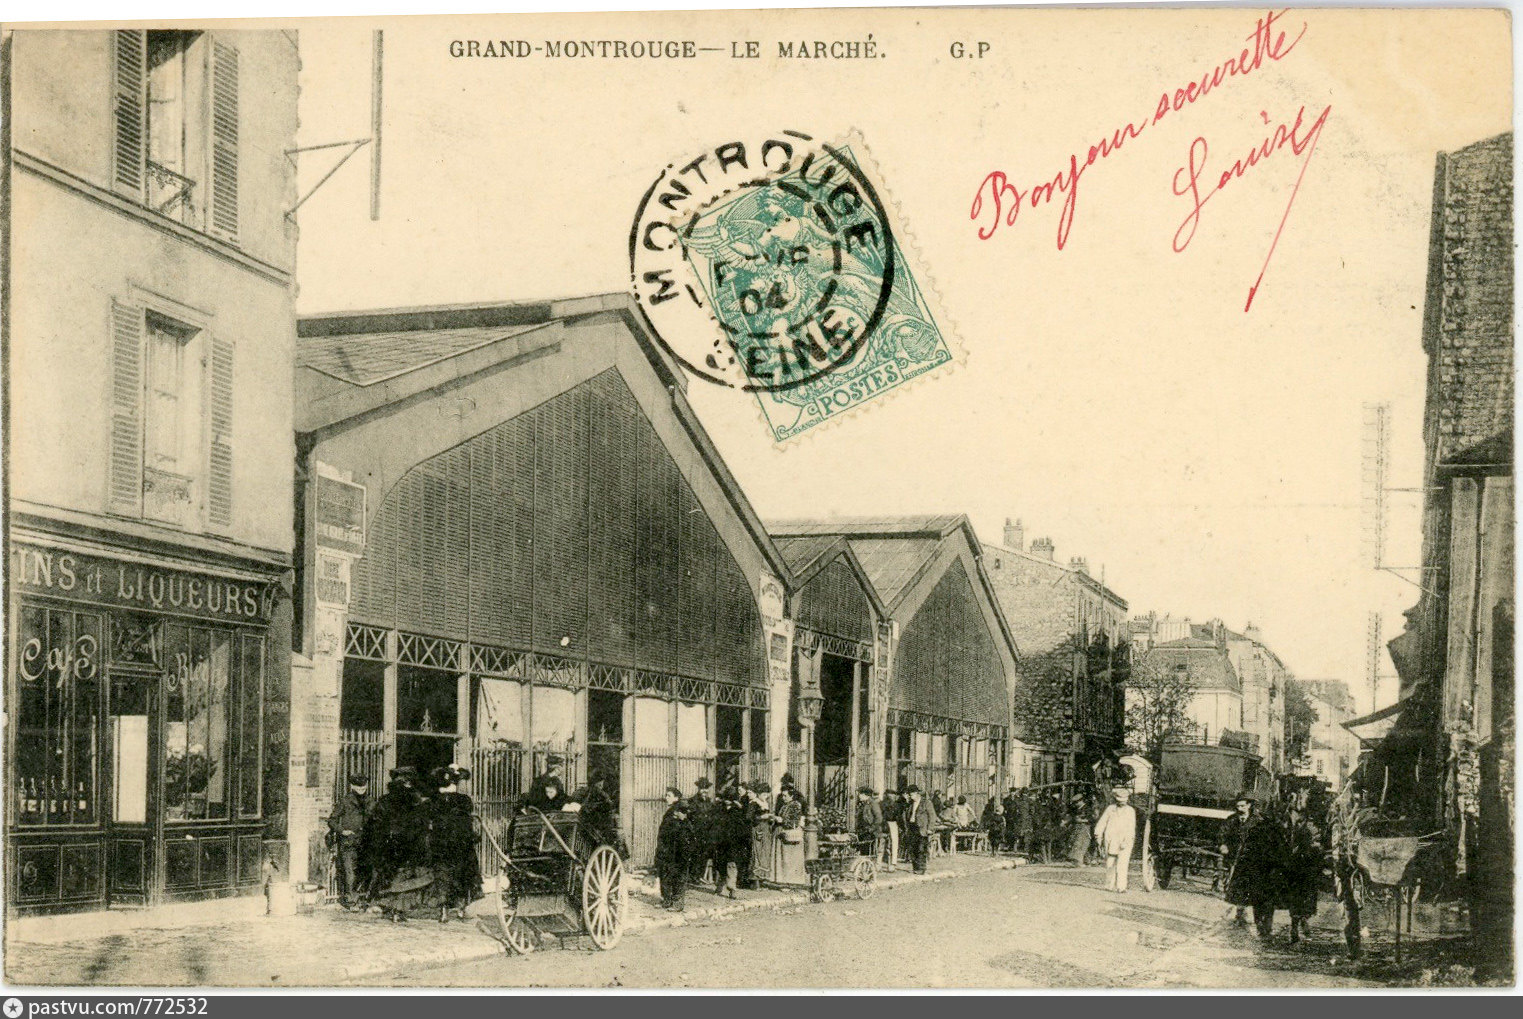 GRAND-MONTROUGE—LE MARCHÉ. G.P
Bonjour sœurette
Louise
MONTROUGE
04
SEINE
POSTES
INS et LIQUEURS
Café
pastvu.com/772532